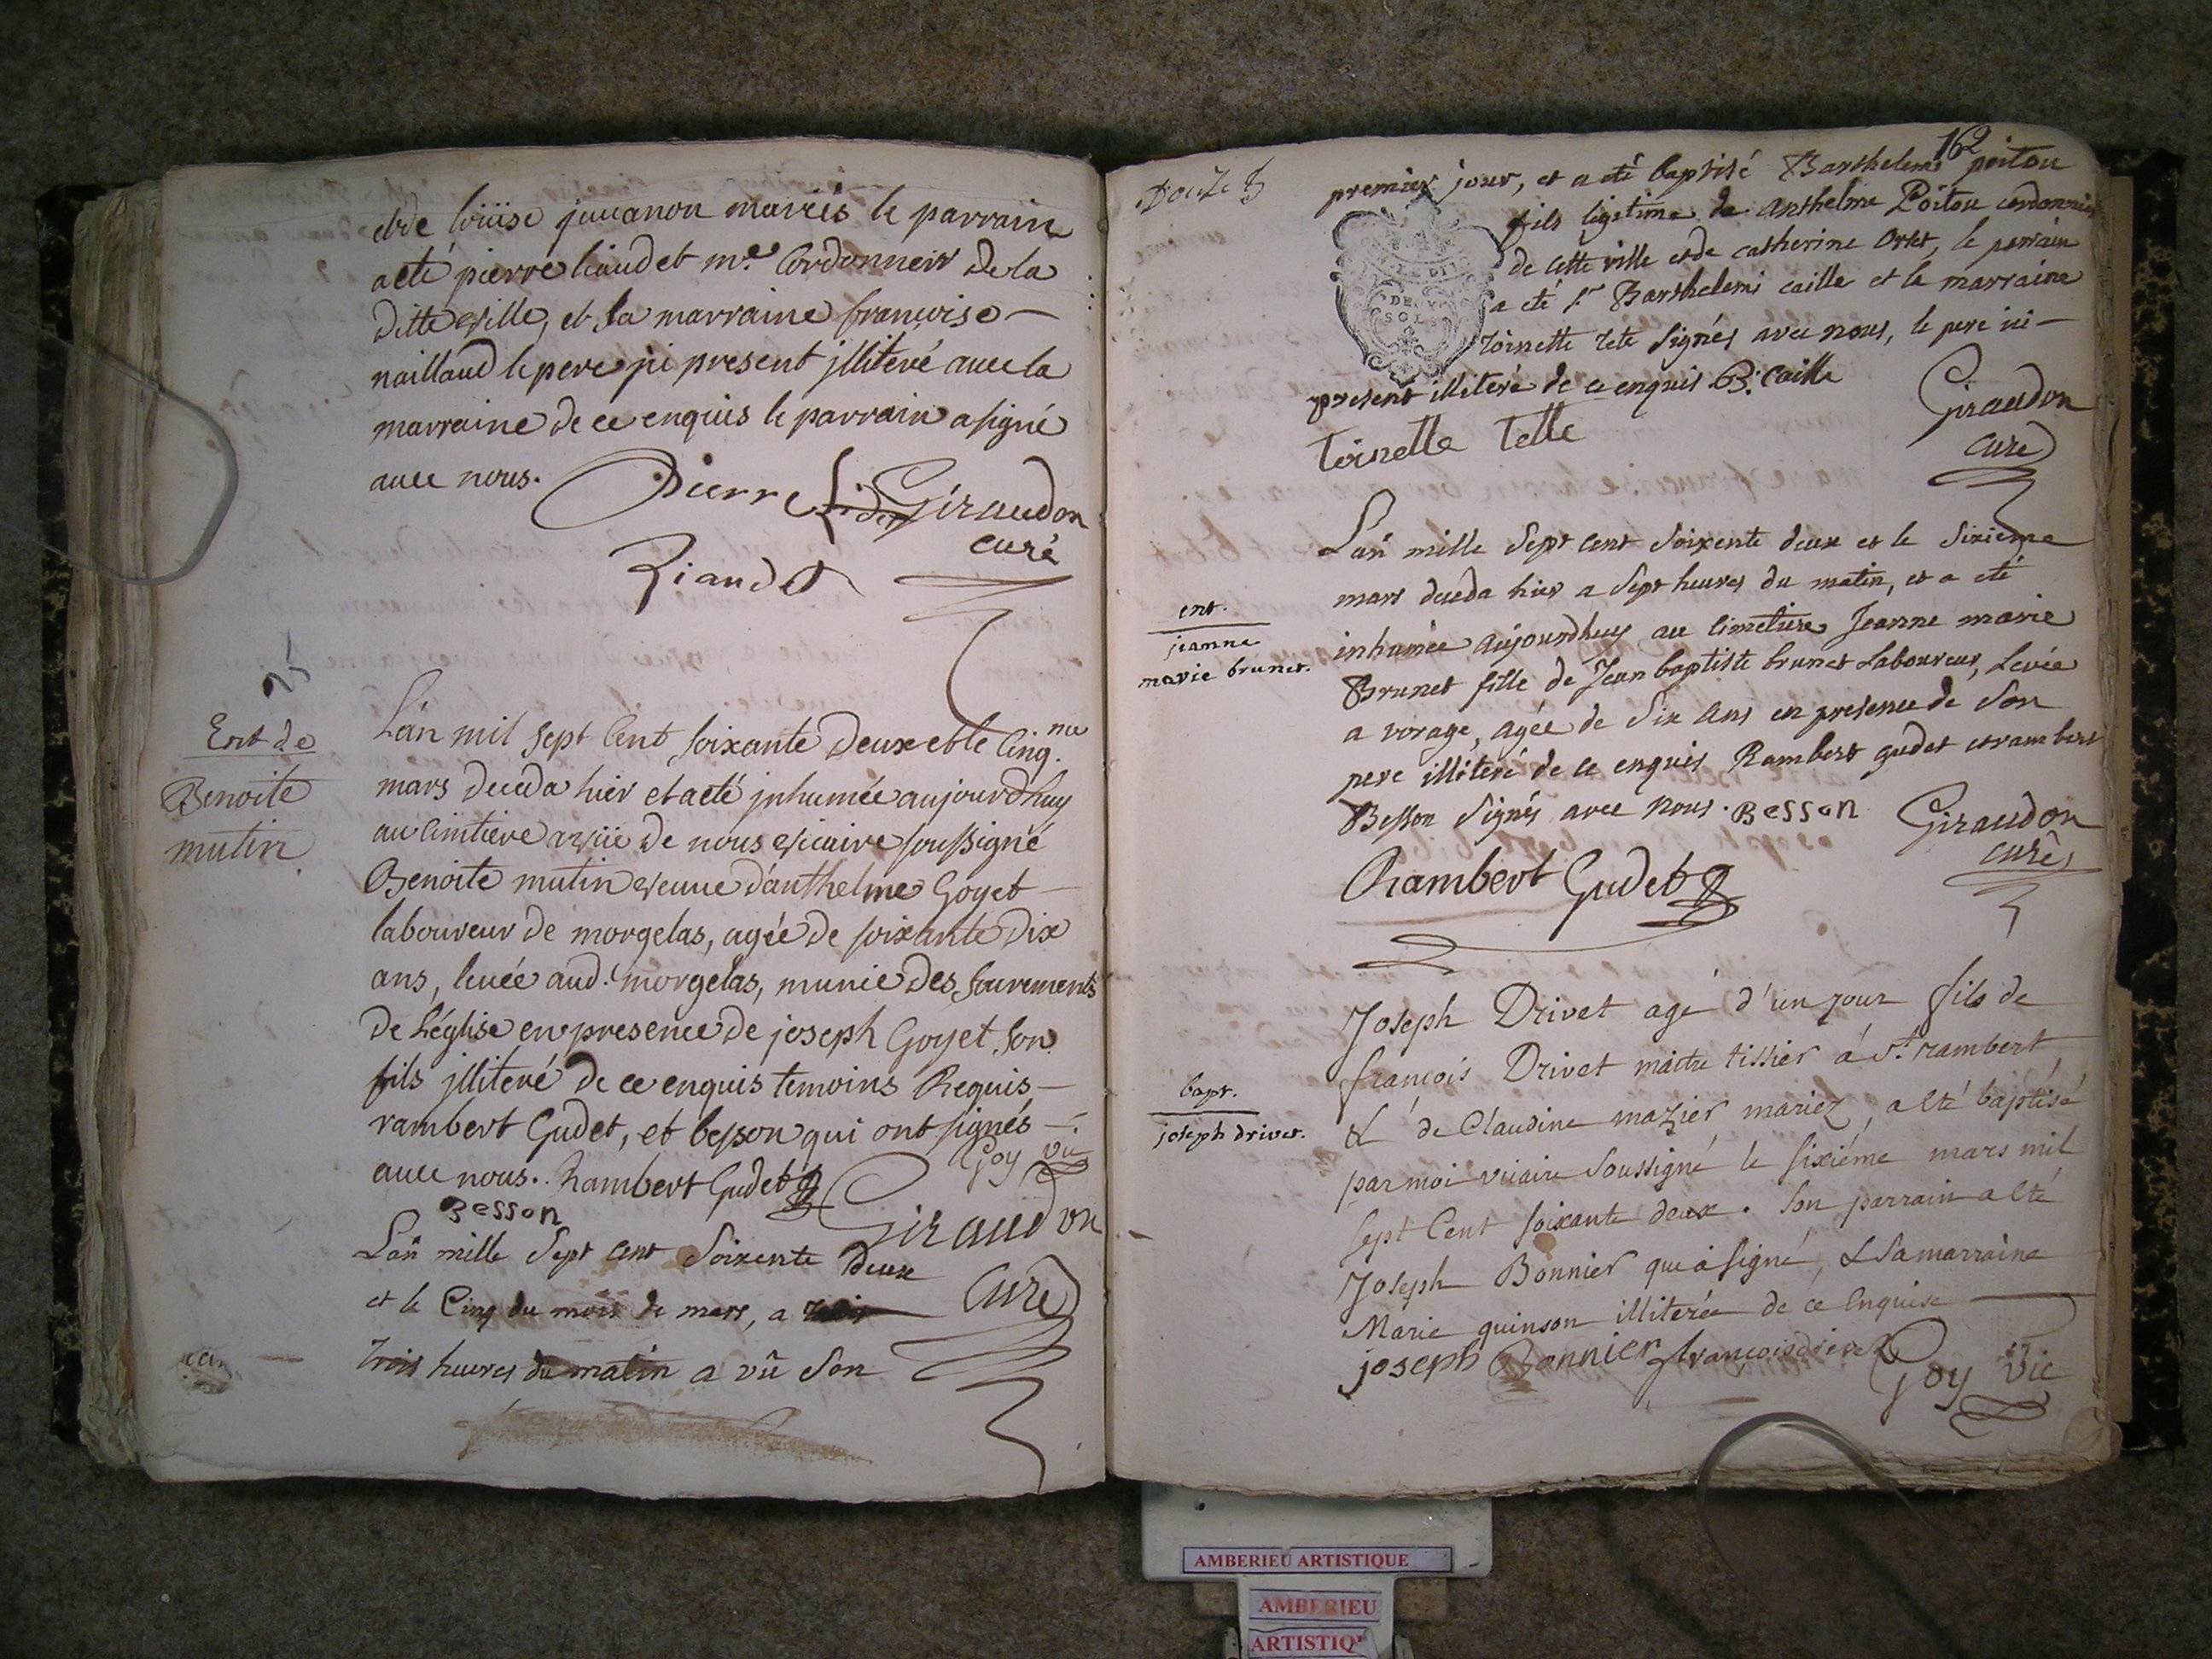 et de loüise juuanon mariés le parrain
a eté pierre liaudet m.e Cordonnier de la
ditte ville, et la marraine françoise —
naillaud le pere ici present jlliteré auec la
marraine de ce enquis le parrain a signé
auec nous. Pierre
Giraudon
curé
Riaudet
25
Ent de
Benoite
mutin
L'an mil sept Cent soixante Deux et le Cinq.me
mars deceda hier et a eté jnhumée aujourdhuy
au Cimtiere de nous vicaire soussigné
Benoite mutin veuue d'anthelme Goyet —
laboureur de morgelas, agée de soixante Dix
ans, leuée aud. morgelas, munie des sacrements
de L'église en presence de joseph Goyet son
fils jlliteré de ce enquis temoins Requis —
rambert Gudet, et besson qui ont signés —
auec nous. Rambert Gudet Goy vic
Besson Giraudon
Curé
L'an mille Sept cent Soixente deux
et le Cinq du mois de mars, a
Trois heures du matin a vû Son
162
Douze
premier jour, et a eté baptisé Barthelemi poitou
fils legitime de anthelme Poitou cordonnier
de cette ville et de catherine Orset, le parrain
a eté s.r Barthelemi caille et la marraine
Toinette tete Signés avec nous, le pere ici —
present illiteré de ce enquis B. Caille
Toinette Tette
Giraudon
curé
DEUX
SOLS
ent.
jeanne
marie brunet.
L'an mille Sept cent Soixente deux et le Sixieme
mars deceda hier a Sept heures du matin, et a eté
inhumée aujourdhuy au Cimetiere Jeanne marie
Brunet fille de Jean baptiste brunet Laboureur, Levée
a vorage, agée de Six ans en presence de Son
pere illiteré de ce enquis Rambert gudet et rambert
Besson Signés avec nous. Besson
Giraudon
curé
Rambert Gudet
bapt.
joseph drivet.
Joseph Drivet agé d'un jour fils de
françois Drivet maitre tissier á St rambert
& de Claudine mazier mariez, a eté baptisé
par moi vicaire Soussigné le sixiéme mars mil
sept Cent soixante deux. Son parrain a eté
Joseph Bonnier qui a signé, & Sa marraine
Marie quinson illiterée de ce Enquise —
joseph Bonnier françois drivet
Goy vic
AMBERIEU ARTISTIQUE
AMBERIEU
ARTISTIQ